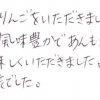 りんごをいただきました
風味豊かであんも
味しくいただきました。
でした。